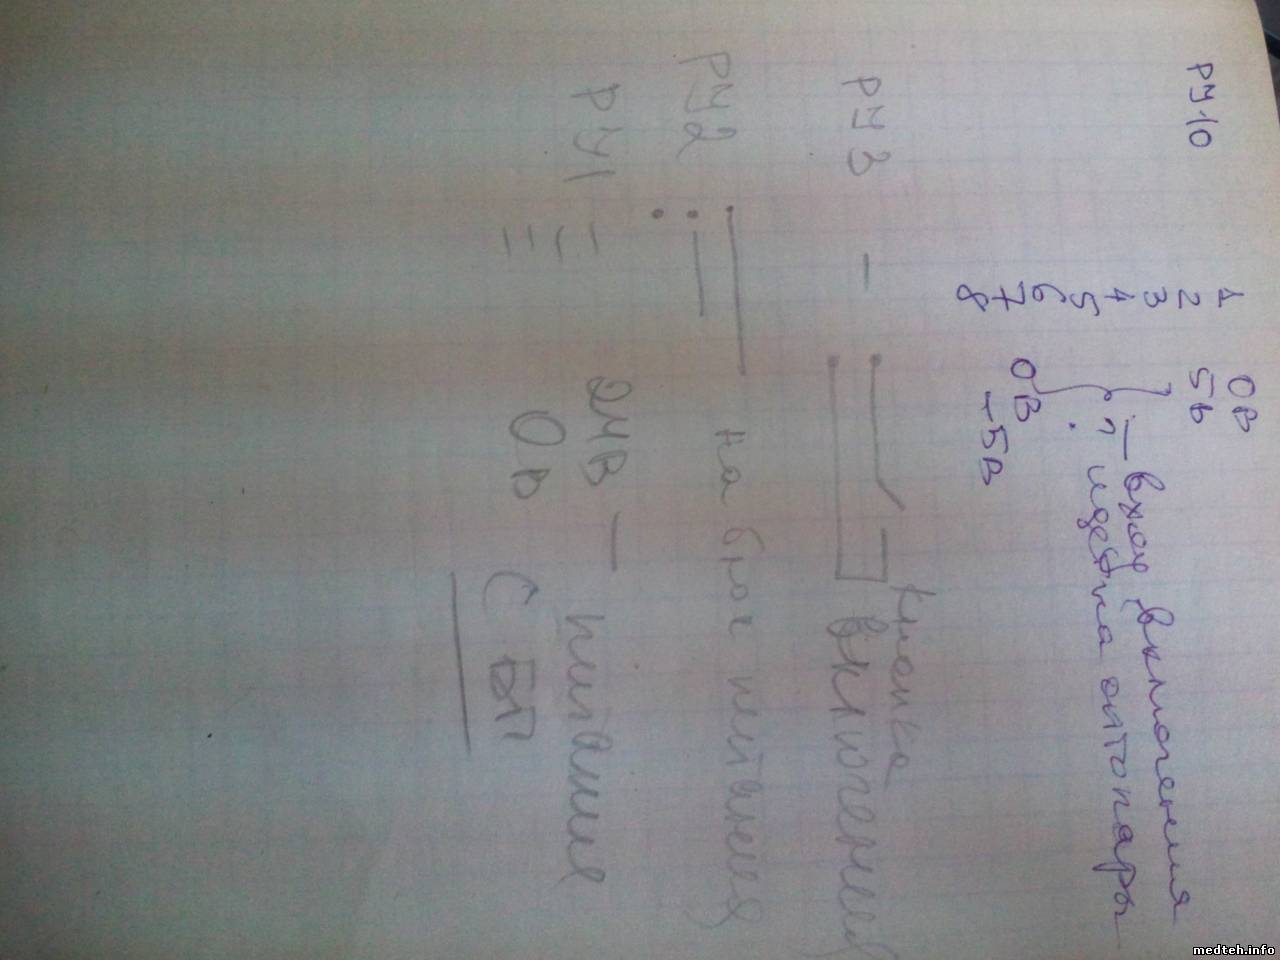 РУ10
1 0В
2 5В
3
4 — вход выключения
5 ? идет на оптопары
6
7 0В
8 -5В
РУ3 — кнопка
включения
РУ2 на блок питания
РУ1 24В — питание
0В с БП
medteh.info